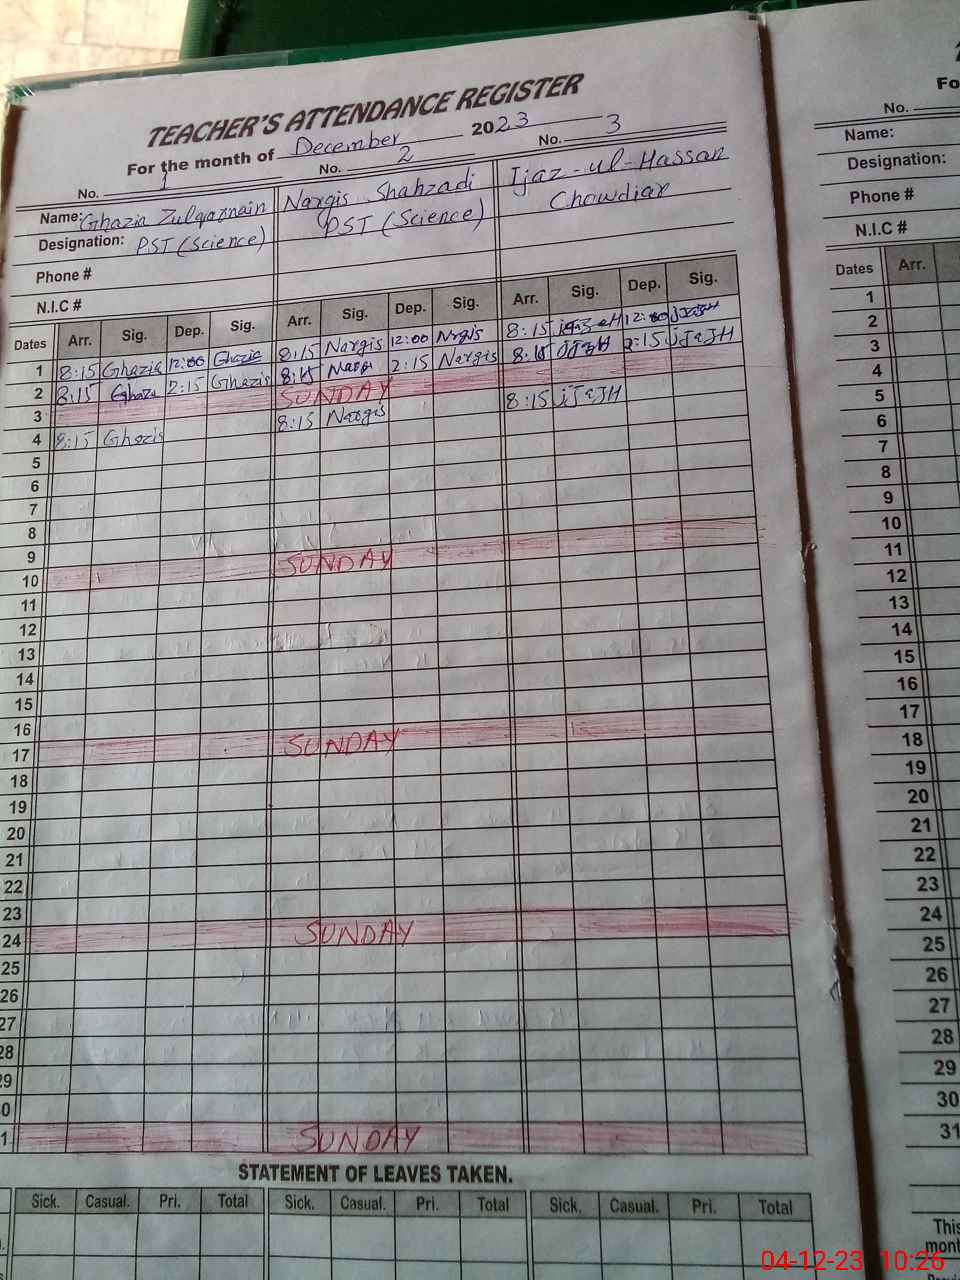 TEACHER'S ATTENDANCE REGISTER
For the month of December 2023
No. 1 No. 2 No. 3
Name: Ghazia Zulqarnain Nargis Shahzadi Ijaz-ul-Hassan
Designation: PST (Science) PST (Science) Chowdiar
Phone #
N.I.C #
Dates Arr. Sig. Dep. Sig. Arr. Sig. Dep. Sig. Arr. Sig. Dep. Sig.
1 8:15 Ghazia 12:00 Ghazia 8:15 Nargis 12:00 Nargis 8:15 12:00
2 8:15 Ghazia 2:15 Ghazia 8:15 Nargis 2:15 Nargis 8:15 ijazH 2:15 ijazH
3 SUNDAY
4 8:15 Ghazia 8:15 Nargis 8:15 ijazH
5
6
7
8
9
10 SUNDAY
11
12
13
14
15
16
17 SUNDAY
18
19
20
21
22
23
24 SUNDAY
25
26
27
28
29
0
1 SUNDAY
STATEMENT OF LEAVES TAKEN.
Sick. Casual. Pri. Total Sick. Casual. Pri. Total Sick. Casual. Pri. Total
Fo
No.
Name:
Designation:
Phone #
N.I.C #
Dates Arr.
1
2
3
4
5
6
7
8
9
10
11
12
13
14
15
16
17
18
19
20
21
22
23
24
25
26
27
28
29
30
31
This
mont
04-12-23 10:26